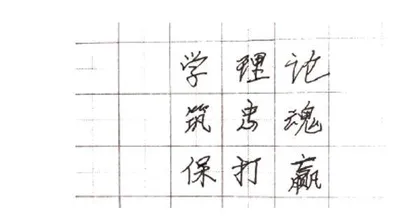 学理论
筑忠魂
保打赢